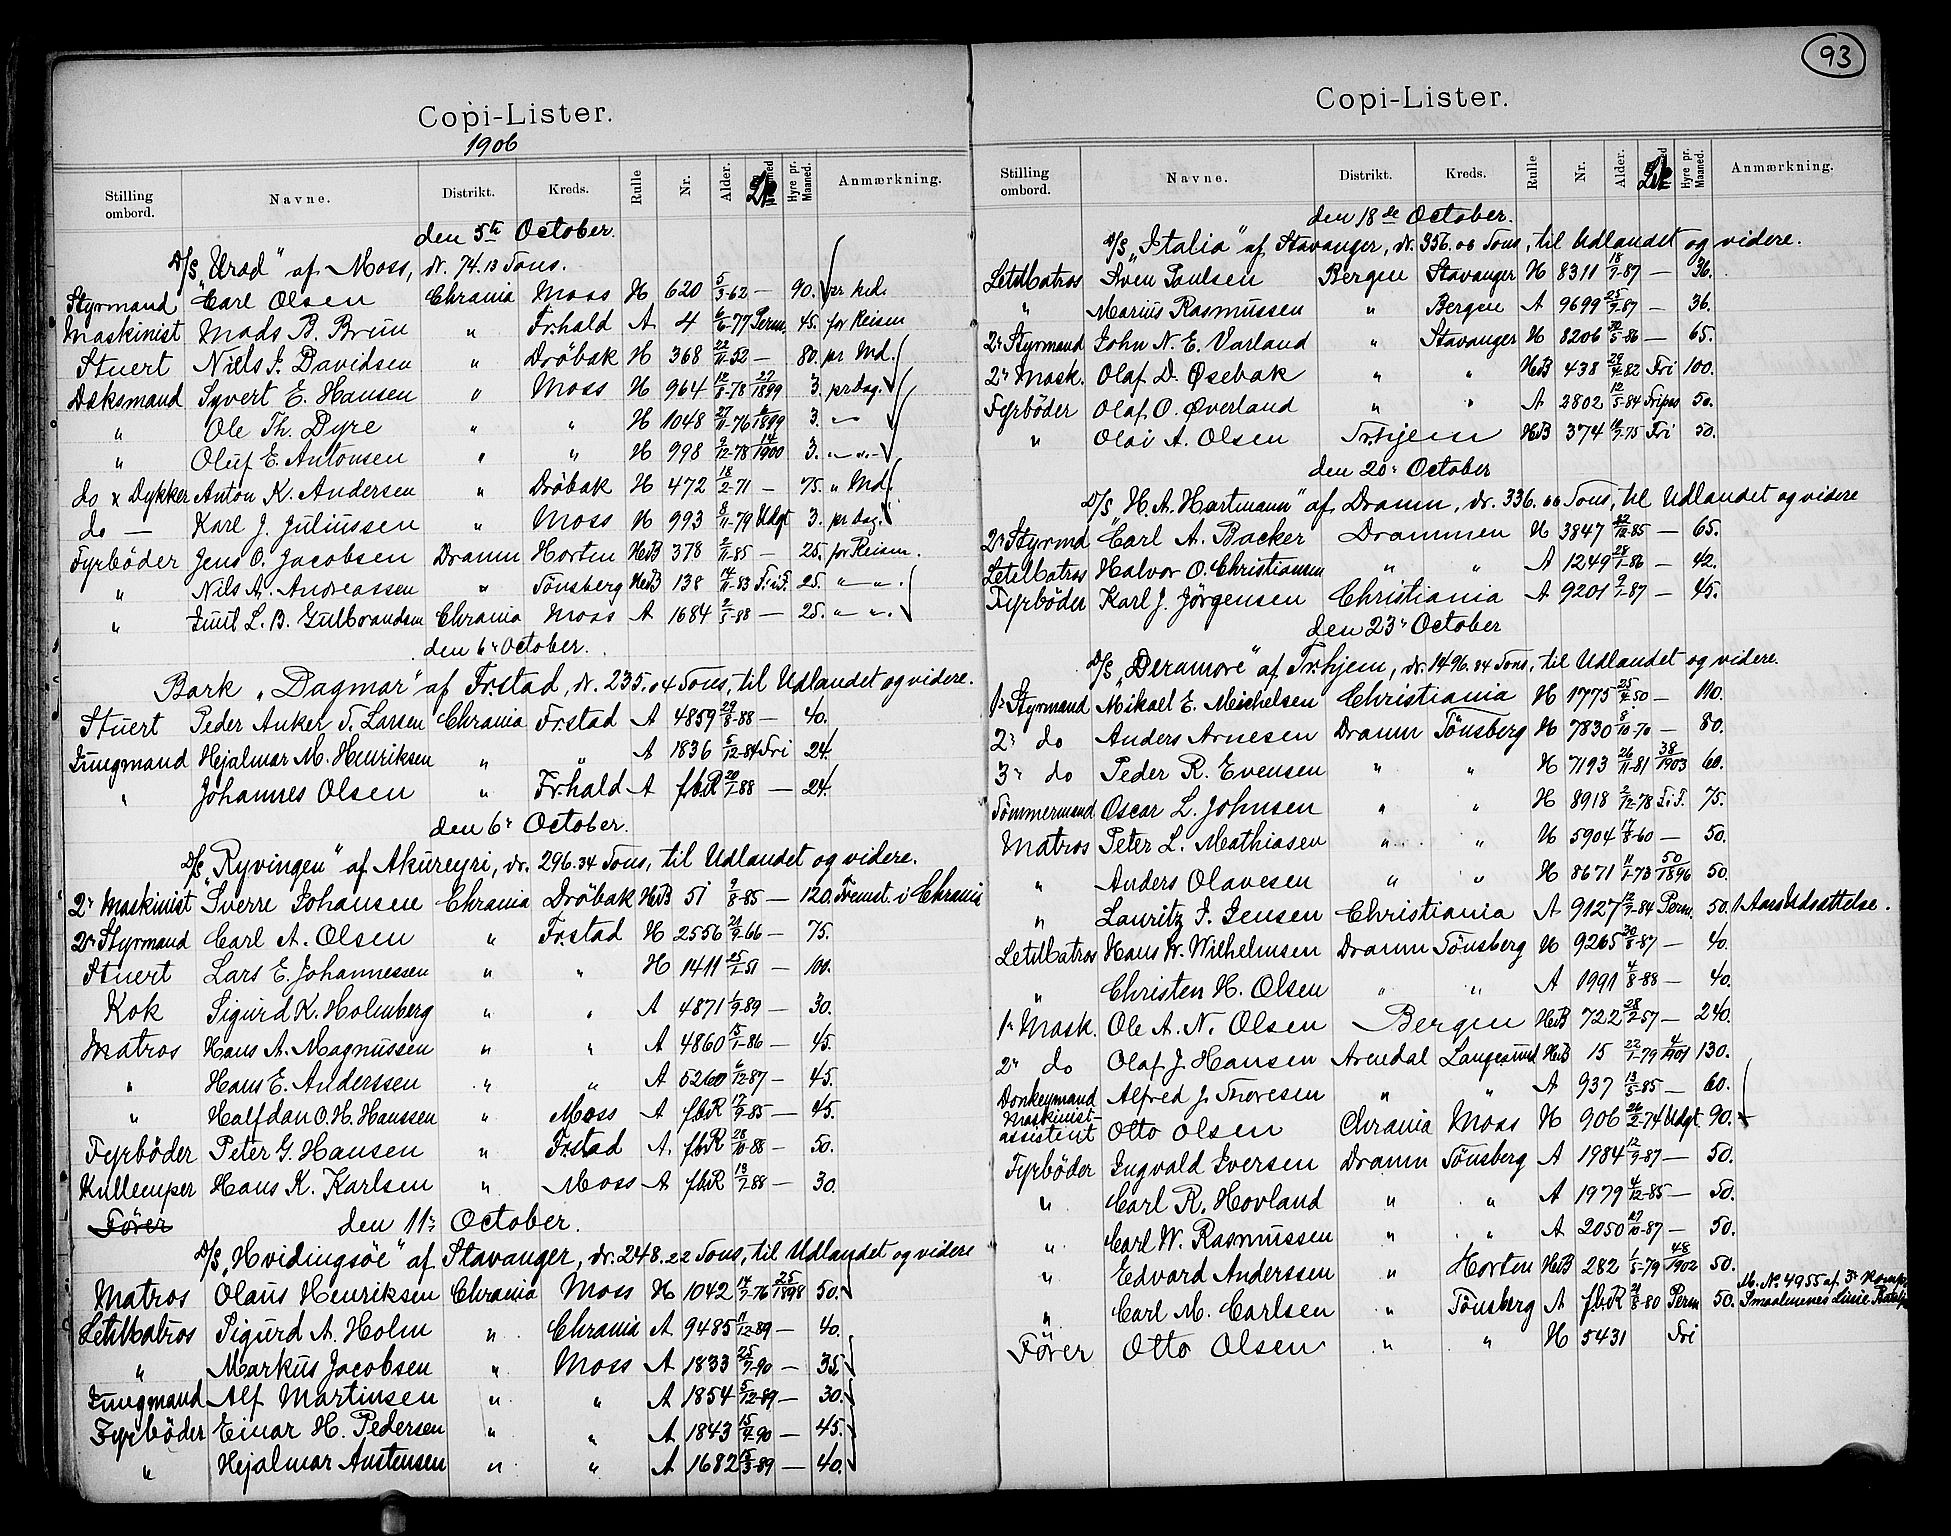 Copi-Lister.
1906
Stilling ombord. Navne. Distrikt. Kreds. Rulle Nr. Alder. Hyre pr. Maaned. Anmærkning.
den 5te October.
D/S „Urad" af Moss, dr. 74.13 Tons.
Styrmand Carl Olsen Chrania Moss H 620 5/3-62 — 90. pr Md.
Maskinist Mads B. Brun " Frhald A 4 6/6-77 Perm. 45. for Reisen
Stuert Niels J. Davidsen " Dröbak H 368 22/11-52 — 80. pr Md.
Dæksmand Syvert E. Hansen " Moss H 964 12/8-78 27/1899 3. pr dag.
" Ole Th. Dyre " " H 1048 27/11-76 6/1899 3. —"—
" Oluf E. Antonsen " " H 998 2/12-78 14/1900 3. "—"—
do x Dykker Anton K. Andersen " Dröbak H 472 18/2-71 — 75. " Md.
do — Karl J. Juliussen " Moss H 993 8/11-79 Udgt 3. pr dag.
Fyrböder Jens O. Jacobsen Dramn Horten H&B 378 2/11-85 — 25. for Reisen.
" Nils A. Andreassen " Tönsberg H&B 138 14/11-83 F.i.F. 25. "—".
" Juul L. B. Gulbrandsen Chrania Moss A 1684 2/5-88 — 25. "— ".
den 6te October.
Bark „Dagmar" af Frstad, dr. 235.04 Tons, til Udlandet og videre.
Stuert Peder Anker T. Larsen Chrania Frstad A 4859 29/8-88 — 40.
Jungmand Hejalmar M. Henriksen " " A 1836 5/12-84 Fri 24.
" Johannes Olsen " Frhald A fbR 20/1-88 — 24.
den 6te October.
D/S „Ryvingen" af Akureyri, dr. 296.34 Tons, til Udlandet og videre.
2n Maskinist Sverre Johansen Chrania Dröbak H&B 51 9/8-85 — 120. Fremst. i Chrania
2n Styrmand Carl A. Olsen " Frstad H 2556 21/9-66 — 75.
Stuert Lars E. Johannessen " " H 1411 25/1-51 — 100.
Kok Sigurd K. Holmberg " " A 4871 1/9-89 — 30.
Matros Hans A. Magnussen " " A 4860 15/1-86 — 45.
" Hans E. Anderssen " " A 5260 6/12-87 — 45.
" Halfdan O. H. Hanssen " Moss A fbR 17/9-85 — 45.
Fyrböder Peter G. Hansen " Frstad A. fbR 28/10-88 — 50.
Kullemper Hans K. Karlsen " Moss A fbR 13/7-88 — 30.
Förer den 11te October.
D/S „Hvidingsöe" af Stavanger, dr. 248.22 Tons, til Udlandet og videre
Matros Olaus Henriksen Chrania Moss H 1042 14/7-76 25/1898 50.
LetMatros Sigurd A. Holm " Chrania A 9485 11/12-89 — 40.
" Markus Jacobsen " Moss A 1833 25/7-90 — 35.
Jungmand Alf Martinsen " " A 1854 5/12-89 — 30.
Fyrböder Einar H. Pedersen " " A 1843 15/4-90 — 45.
" Hejalmar Austensen " " A 1682 15/3-89 — 40.
93
Copi-Lister.
Stilling ombord. Navne. Distrikt. Kreds. Rulle Nr. Alder. Hyre pr. Maaned. Anmærkning.
den 18de October.
D/S „Italia" af Stavanger, dr. 356.06 Tons, til Udlandet og videre.
LetMatros Sven Paulsen Bergen Stavanger H 8311 18/7-87 — 36.
" Marius Rasmussen " Bergen A 9699 25/9-87 — 36.
2n Styrmand John N. E. Varland " Stavanger H 8206 30/5-86 — 65.
2n Mask. Olaf D. Øsebak " " H&B 438 29/4-82 Fri 100.
Fyrböder Olaf O. Øverland " " A 2802 12/5-84 Fripas 50.
" Olai A. Olsen Trhjem H&B 374 12/7-75 Fri 50.
den 20n October
D/S „H. A. Hartmann" af Dramn, dr. 336.66 Tons, til Udlandet og videre
2n Styrmd Carl A. Backer Drammen H 3847 22/12-85 — 65.
LetMatros Halvor O. Christiansen " " A 1249 28/1-86 — 42.
Fyrböder Karl J. Jörgensen Christiania A 9201 9/7-87 — 45.
den 23n October
D/S „Deramore" af Trhjem, dr. 1496.34 Tons, til Udlandet og videre.
1n Styrmand Mikael E. Meichelsen Christiania H 1775 25/4-50 — 110.
2n do Anders Arnesen Dramn Tönsberg H 7830 8/10-70 — 80.
3n do Peder R. Evensen " " H 7193 26/11-81 38/1903 60.
Tömmermand Oscar L. Johnsen " " H 8918 2/12-78 F.i.F. 75.
Matros Peter L. Mathiasen " " H 5904 17/8-60 — 50.
" Anders Olavesen " " H 8671 11/1-73 50/1896 50.
" Lauritz J. Jensen Christiania A 9127 12/9-84 Perm. 50. 1 Aars Udsættelse.
LetMatros Hans W. Wilhelmsen Dramn Tönsberg H 9265 30/8-87 — 40.
" Christen H. Olsen " " A 1991 4/8-88 — 40.
1n Mask. Ole A. N. Olsen Bergen H&B 722 28/2-57 — 240.
2n do Olaf J. Hansen Arendal Langesund H&B 15 22/1-79 4/1901 130.
Donkeymand Alfred J. Thoresen " " A 937 13/5-85 — 60.
Maskinist-assistent Otto Olsen Chrania Moss H 906 26/2-74 Udgt 90.
Fyrböder Ingvald Iversen Dramn Tönsberg A 1984 12/9-87 — 50.
" Carl R. Hovland " " A 1979 4/12-85 — 50.
" Carl W. Rasmussen " " A 2050 27/10-87 — 50.
" Edvard Anderssen " Horten H&B 282 1/5-79 48/1902 50.
" Carl M. Carlsen " Tönsberg A fbR 21/8-80 Perm 50. M. No 4955 af 3n Komp. Smaalenenes Linie
Förer Otto Olsen " " H 5431 Fri